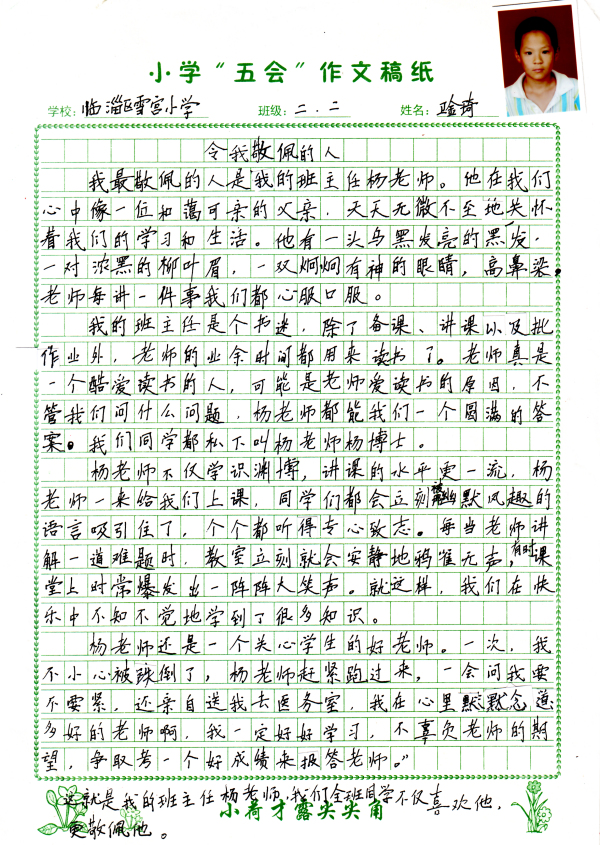 小学“五会”作文稿纸
学校：临淄区雪宫小学 班级：二．二 姓名：
令我敬佩的人
我最敬佩的人是我的班主任杨老师。他在我们
心中像一位和蔼可亲的父亲，天天无微不至地关怀
着我们的学习和生活。他有一头乌黑发亮的黑发，
一对浓黑的柳叶眉，一双炯炯有神的眼睛，高鼻梁。
老师每讲一件事我们都心服口服。
我的班主任是个书迷，除了备课、讲课以及批
作业外，老师的业余时间都用来读书了。老师真是
一个酷爱读书的人，可能是老师爱读书的原因，不
管我们问什么问题，杨老师都能我们一个圆满的答
案。我们同学都私下叫杨老师杨博士。
杨老师不仅学识渊博，讲课的水平更一流，杨
老师一来给我们上课，同学们都会立刻被幽默风趣的
语言吸引住了，个个都听得专心致志。每当老师讲
解一道难题时，教室立刻就会安静地鸦雀无声，有时课
堂上时常爆发出一阵阵大笑声。就这样，我们在快
乐中不知不觉地学到了很多知识。
杨老师还是一个关心学生的好老师。一次，我
不小心被跺倒了，杨老师赶紧跑过来，一会问我要
不要紧，还亲自送我去医务室，我在心里默默念道
多好的老师啊，我一定好好学习，不辜负老师的期
望，争取考一个好成绩来报答老师。”
这就是我的班主任杨老师，我们全班同学不仅喜欢他，
更敬佩他。
小荷才露尖尖角